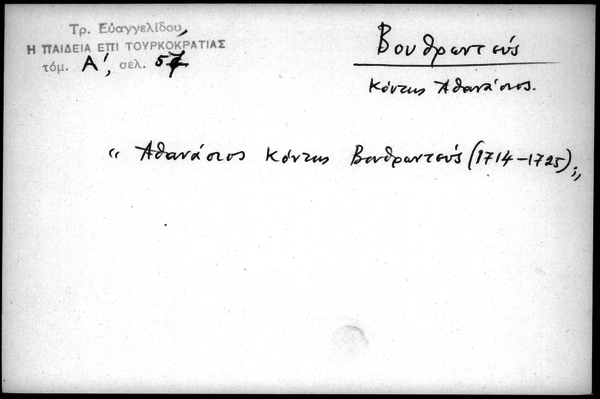 Τρ. Εὐαγγελίδου,
Η ΠΑΙΔΕΙΑ ΕΠΙ ΤΟΥΡΚΟΚΡΑΤΙΑΣ
τόμ. Α', σελ. 57
Βουθρωτεύς
Κόντης Ἀθανάσιος.
" Ἀθανάσιος Κόντης Βουθρωτεύς (1714-1725),,